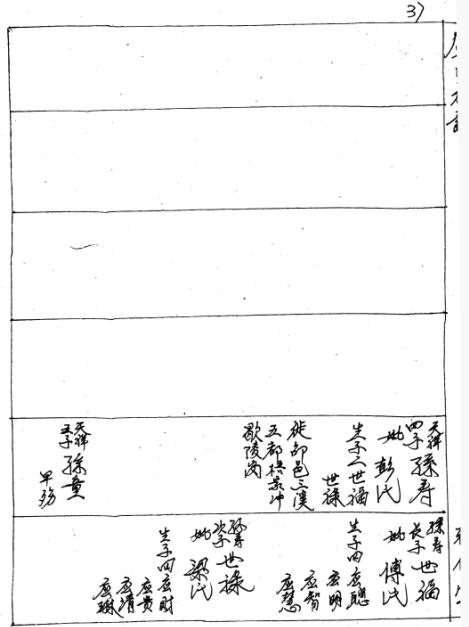 37
天祥四子 孫寿
妣 彭氏
生子二 世福
世祿
徙邵邑三溪
五都
歇陵岗
天祥五子 孫童
早殇
孫寿长子 世福
妣 傅氏
生子四 应聪
应明
应智
应慧
孫寿次子 世祿
妣 梁氏
生子四 应财
应贵
应清